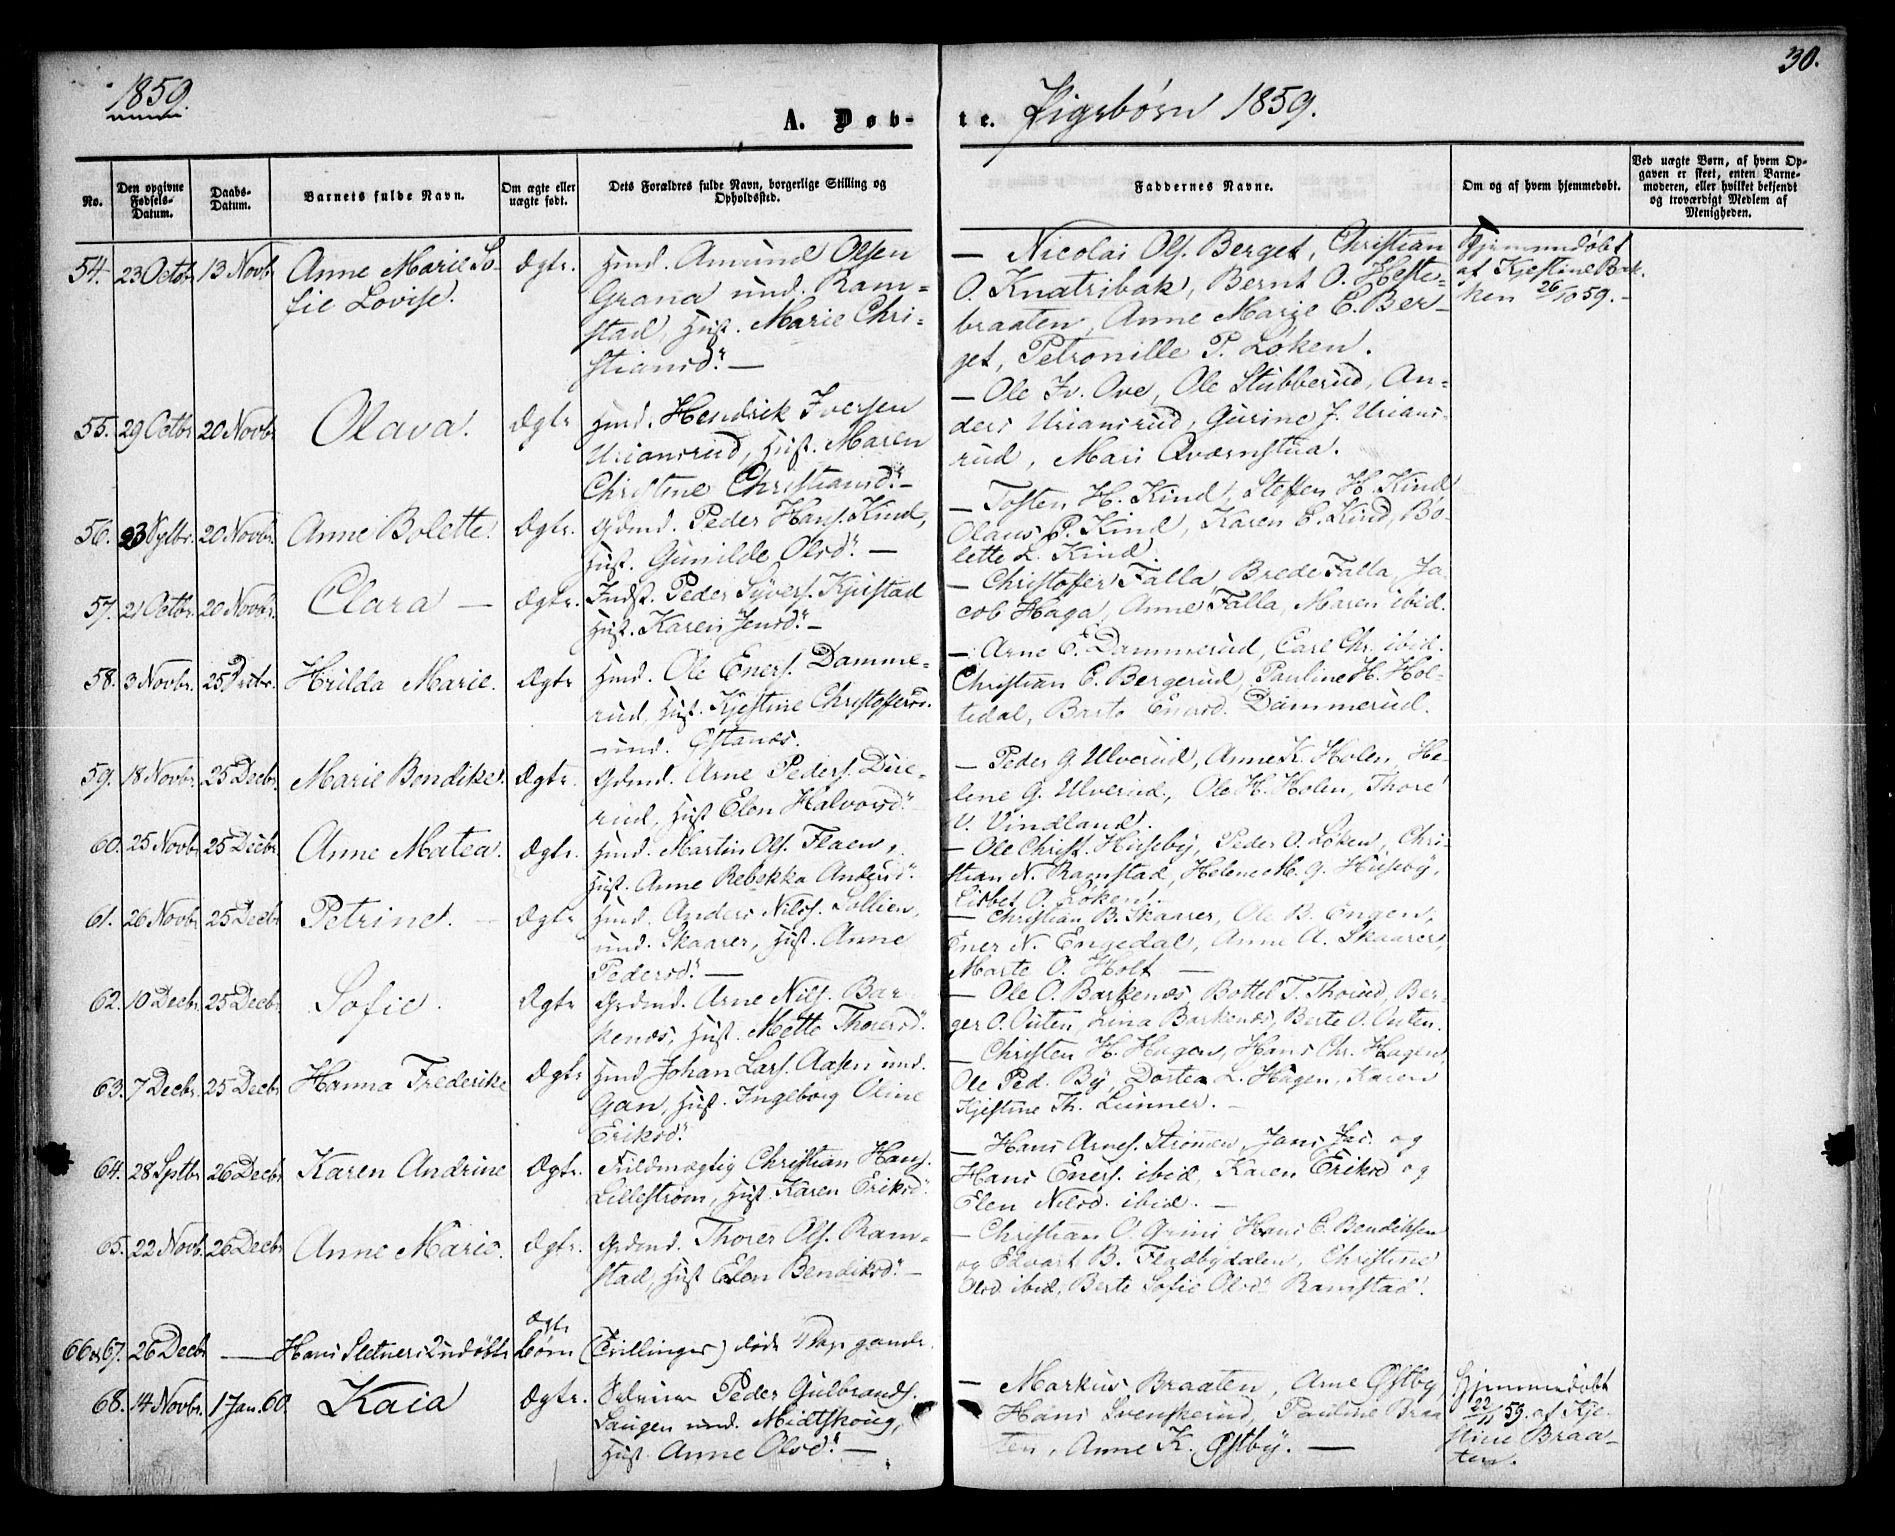 30.
1859.
A. Døb-
te. Pigebørn 1859.
No.
Den opgivne Fødsels-Datum.
Daabs-Datum.
Barnets fulde Navn.
Om ægte eller uægte født.
Dets Forældres fulde Navn, borgerlige Stilling og Opholdssted.
Faddernes Navne.
Om og af hvem hjemmedøbt.
Ved uægte Børn, af hvem Op-
gaven er skeet, enten Barne-
moderen, eller hvilket bekjendt
og troværdigt Medlem af
Menigheden.
54. 23 Octbr 13 Novbr Anne Marie So- Ægte.
fie Lovise.
Huusmd. Amund Olsen
Grana und. Ram-
stad Hust. Marie Chri-
stiansd. —
— Nicolai Ols. Berget, Christian
O. Knatribak, Bernt O. Heste-
braaten, Anne Marie E. Ber-
get, Petronille P. Løken.
Hjemmedøbt
af Kjestine Bak-
ken 26/10 59. —
55. 29 Octbr 20 Novbr Olava. Ægte
Huusmd. Hendrik Iversen
Uriansrud, Hust. Maren
Christine Christiansd. —
— Ole Iv. Ove, Ole Stubberud, An-
ders Uriansrud, Gurine J. Urians-
rud, Mari Qværnstua.
56. 23 Septbr. 20 Novbr. Anne Bolette. Ægte.
Grdmd. Peder Hans. Kind,
Hust. Gunilde Olsd. —
— Tosten H. Kind, Steffen H. Kind
Olaus P. Kind, Karen E. Kind, Bo-
lette L. Kind.
57. 21 Octbr. 20 Novbr. Clara — Ægte.
Indst. Peder Syvers. Kjestad
Hust. Karen Jensd. —
— Christoffer Falla, Brede Falla, Ja-
cob Haga, Anne Falla, Maren ibid.
58. 3 Novbr. 25 Decbr. Hilda Marie. Ægte
Huusmd. Ole Eners. Damme-
rud, Hust. Kjestine Christoffersd.
— und. Østanes.
— Arne E. Dammerud, Carl Chr. ibid.
Christian E. Bergerud, Pauline H. Hol-
tedal, Barto Enersd. Dammerud.
59. 18 Novbr. 25 Decbr. Marie Bendikke. Ægte.
Grdmd. Arne Peders. Due-
rud, Hust Elen Halvorsd.
— Peder G. Ulverud, Anne K. Holen, He-
lene G. Ulverud, Ole H. Holen, Thore
V. Vindland.
60. 25 Novbr 25 Decbr Anne Matea. Ægte.
Huusmd. Martin Ols. Flaen,
Hust. Anne Rebekka Andersd.
— Ole Christ. Huseby, Peder O. Løken, Chri-
stian N. Ramstad, Helene M. G. Huseby,
Lisbet O. Løken.
61. 26 Novbr 25 Decbr Petrine. — Ægte
Huusmd. Anders Nils. Lollien,
und. Skaarer, Hust. Anne
Pedersd. —
— Christian B. Skaarer, Ole B. Engen,
Ener N. Engedal, Anne A. Skaarer,
Marte O. Holt —
62. 10 Decbr 25 Decbr Sofie. Ægte
Grdmd. Arne Nils. Bar-
kenæs, Hust. Mette Thoresd.
— Ole O. Barkenæs, Bottel T. Thorud, Ber-
ger O. Outen, Lina Barkenæs, Berte O. Outen.
63. 7 Decbr. 25 Decbr Hanna Frederike Ægte
Huusmd Johan Lars. Aasen und.
Gan, Hust. Ingeborg Oline
Eriksd.
— Christen H. Hagen, Hans Chr. Hagen
Ole Ped. By, Dortea L. Hagen, Karen
Kjestine Th. Lunner. —
64. 28 Septbr 26 Decbr Karen Andrine Ægte.
Fuldmægtig Christian Hans.
Lillestrøm, Hust. Karen Eriksd.
— Hans Arnes. Strømmen, Jans Jac. og
Hans Eners. ibid, Karen Eriksd og
Elen Nilsd. ibid. —
65. 22 Novb. 26 Decbr Anne Marie. Ægte.
Grdmd. Thorer Ols. Ram-
stad, Hust Elen Bendiksd. —
— Christian O. Grini Hans E. Bendiksen
og Edvart B. Fladbydalen, Christine
Olsd. ibid, Berte Sofie Olsd. Ramstad.
66 og 67. 26 Decbr — Hans Sletners 2 udøbte Ægte Børn (Trillinger) døde 4 Dage gamle.
68. 14 Novbr. 1 Jan. 60. Kaia Ægte.
Selveier Peder Gulbrands.
Haugen und. Midtskoug,
Hust. Anne Olsd. —
— Markus Braaten, Arne Østby
Hans Svenskerud, Pauline Braa-
ten, Anne K. Østby. —
Hjemmedøbt
22/11 59. af Kje-
stine Braa-
ten.